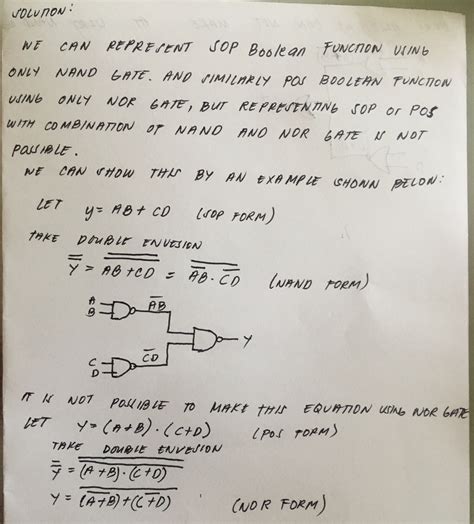 SOLUTION:
WE CAN REPRESENT SOP Boolean FUNCTION USING
ONLY NAND GATE. AND SIMILARLY POS BOOLEAN FUNCTION
USING ONLY NOR GATE, BUT REPRESENTING SOP or POS
WITH COMBINATION OF NAND AND NOR GATE IS NOT
POSSIBLE.
WE CAN SHOW THIS BY AN EXAMPLE SHOWN BELOW:
LET y = AB + CD (SOP FORM)
TAKE DOUBLE ENVESION
Y̿ = \overline{\overline{AB + CD}} = \overline{\overline{AB} · \overline{CD}} (NAND FORM)
A
B
\overline{AB}
Y
C
D
\overline{CD}
IT IS NOT POSSIBLE TO MAKE THIS EQUATION USING NOR GATE
LET Y = (A+B) · (C+D) (POS FORM)
TAKE DOUBLE ENVESION
Y̿ = \overline{\overline{(A+B) · (C+D)}}
Y = \overline{\overline{(A+B)} + \overline{(C+D)}} (NOR FORM)